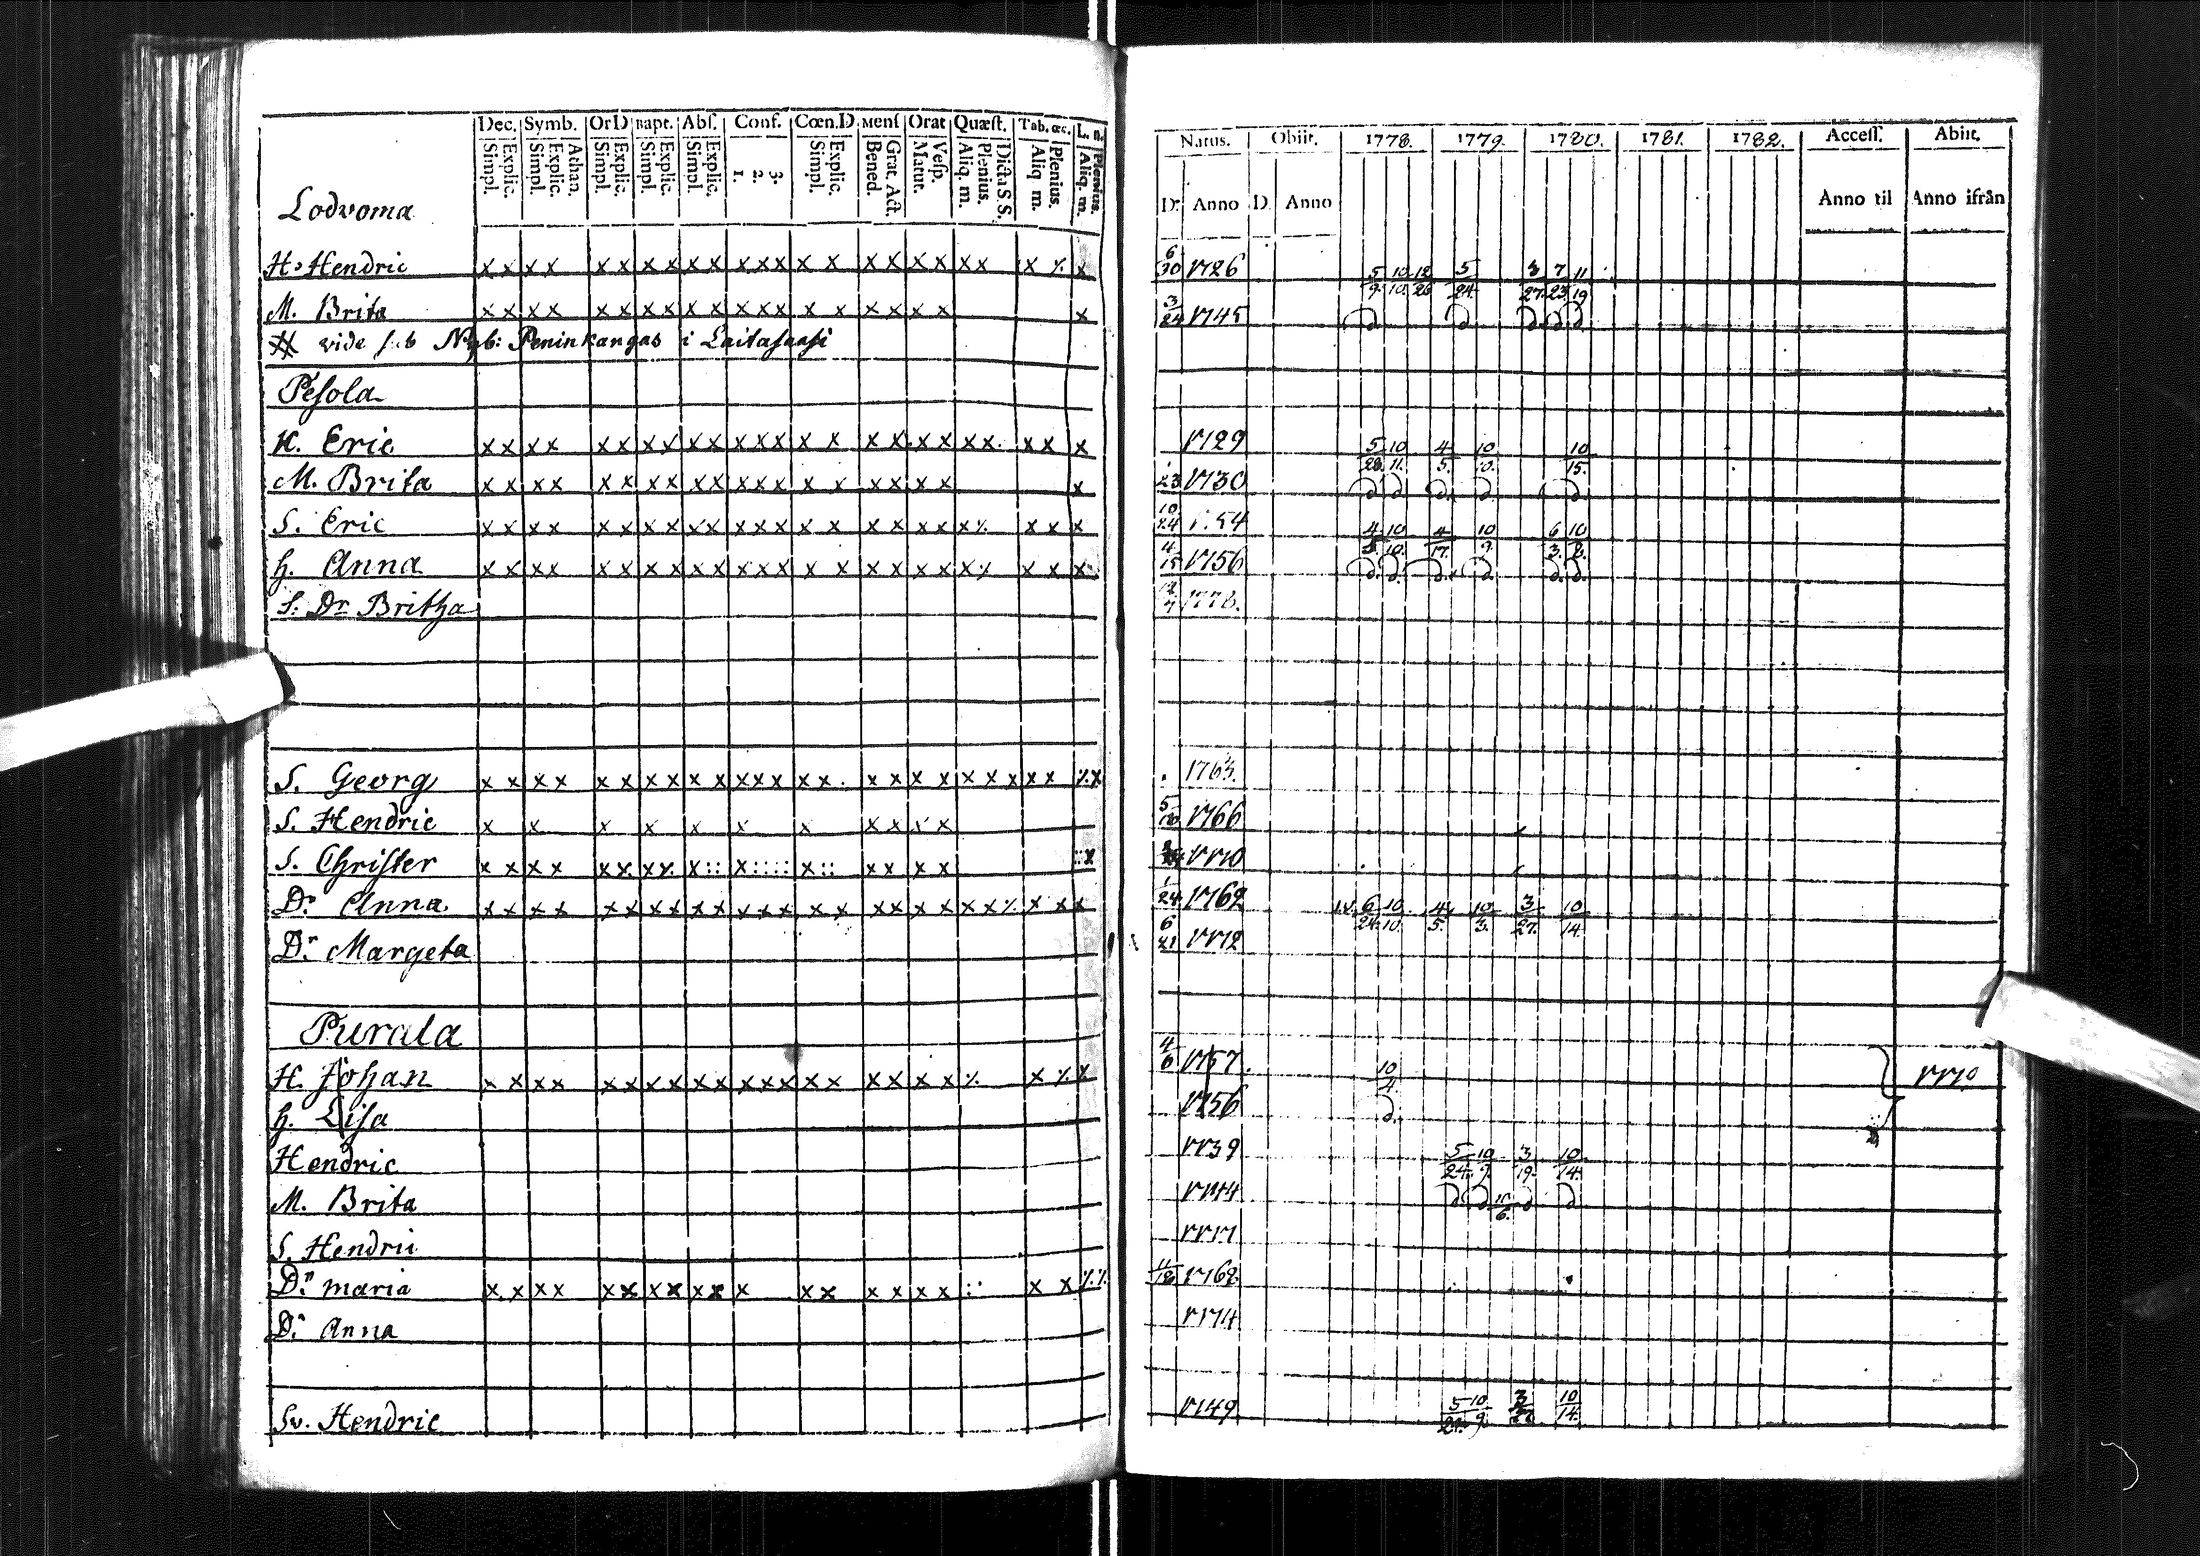 Dec. Symb. OrD Bapt. Abſ. Conf. Cœn.D. Menſ Orat Quæſt. Tab. œc. L. n.
Simpl. Explic. Simpl. Explic. Athan. Simpl. Explic. Simpl. Explic. Simpl. Explic. 1. 2. 3. Simpl. Explic. Bened. Grat. Act. Matut. Veſp. Aliq. m. Plenius. Dicta S.S. Aliq m. Plenius. Aliq. m. Plenius.
Lodvoma
H. Hendric x x x x x x x x x x x x x x x x x x x x x x x
M. Brita x x x x x x x x x x x x x x x x x x x x
vide sub N:yb: Peninkangas i Laitasaari
Peſola
H. Eric x x x x x x x x x x x x x x x x x x x x x x x x
M. Brita x x x x x x x x x x x x x x x x x x x x
S. Eric x x x x x x x x x x x x x x x x x x x x x x
h. Anna x x x x x x x x x x x x x x x x x x x x x x
S. Dr Britha
S. Georg x x x x x x x x x x x x x x x x x x x x x x x x
S. Hendric x x x x x x x x x x x
S. Chriſter x x x x x x x x x x x x x x x
Dr. Anna x x x x x x x x x x x x x x x x x x x x x x x x
Dr. Margeta
Purala
H. Johan x x x x x x x x x x x x x x x x x x x x
h. Liſa
Hendric
M. Brita
S. Hendric
Dr. maria x x x x x x x x x x x x x x x x x x x
Dr. Anna
Sv. Hendric
Natus. Obiit. 1778. 1779. 1780. 1781. 1782. Acceſſ. Abiit.
D. Anno D. Anno Anno til Anno ifrån
6/30 1726 5/9. 10/10. 12/26 5/24. 3/27. 7/23 11/19
3/24 1745
1729 5/28. 10/11. 4/5. 10 10/15.
1730
1754 4 10/10. 4/17. 10/9. 6/3. 10/8.
4/15 1756
1778.
1763.
1766
1770
1/24 1762 6/24 10/10. 4/5. 10/3. 3/27. 10/14.
6/21 1772
4/6 1757. 10/4. 1779
1756
1739 5/24. 10/9. 3/19. 10/14.
1744
1771
11/18 1768
1774
1749. 5 10/9. 3 10/14.